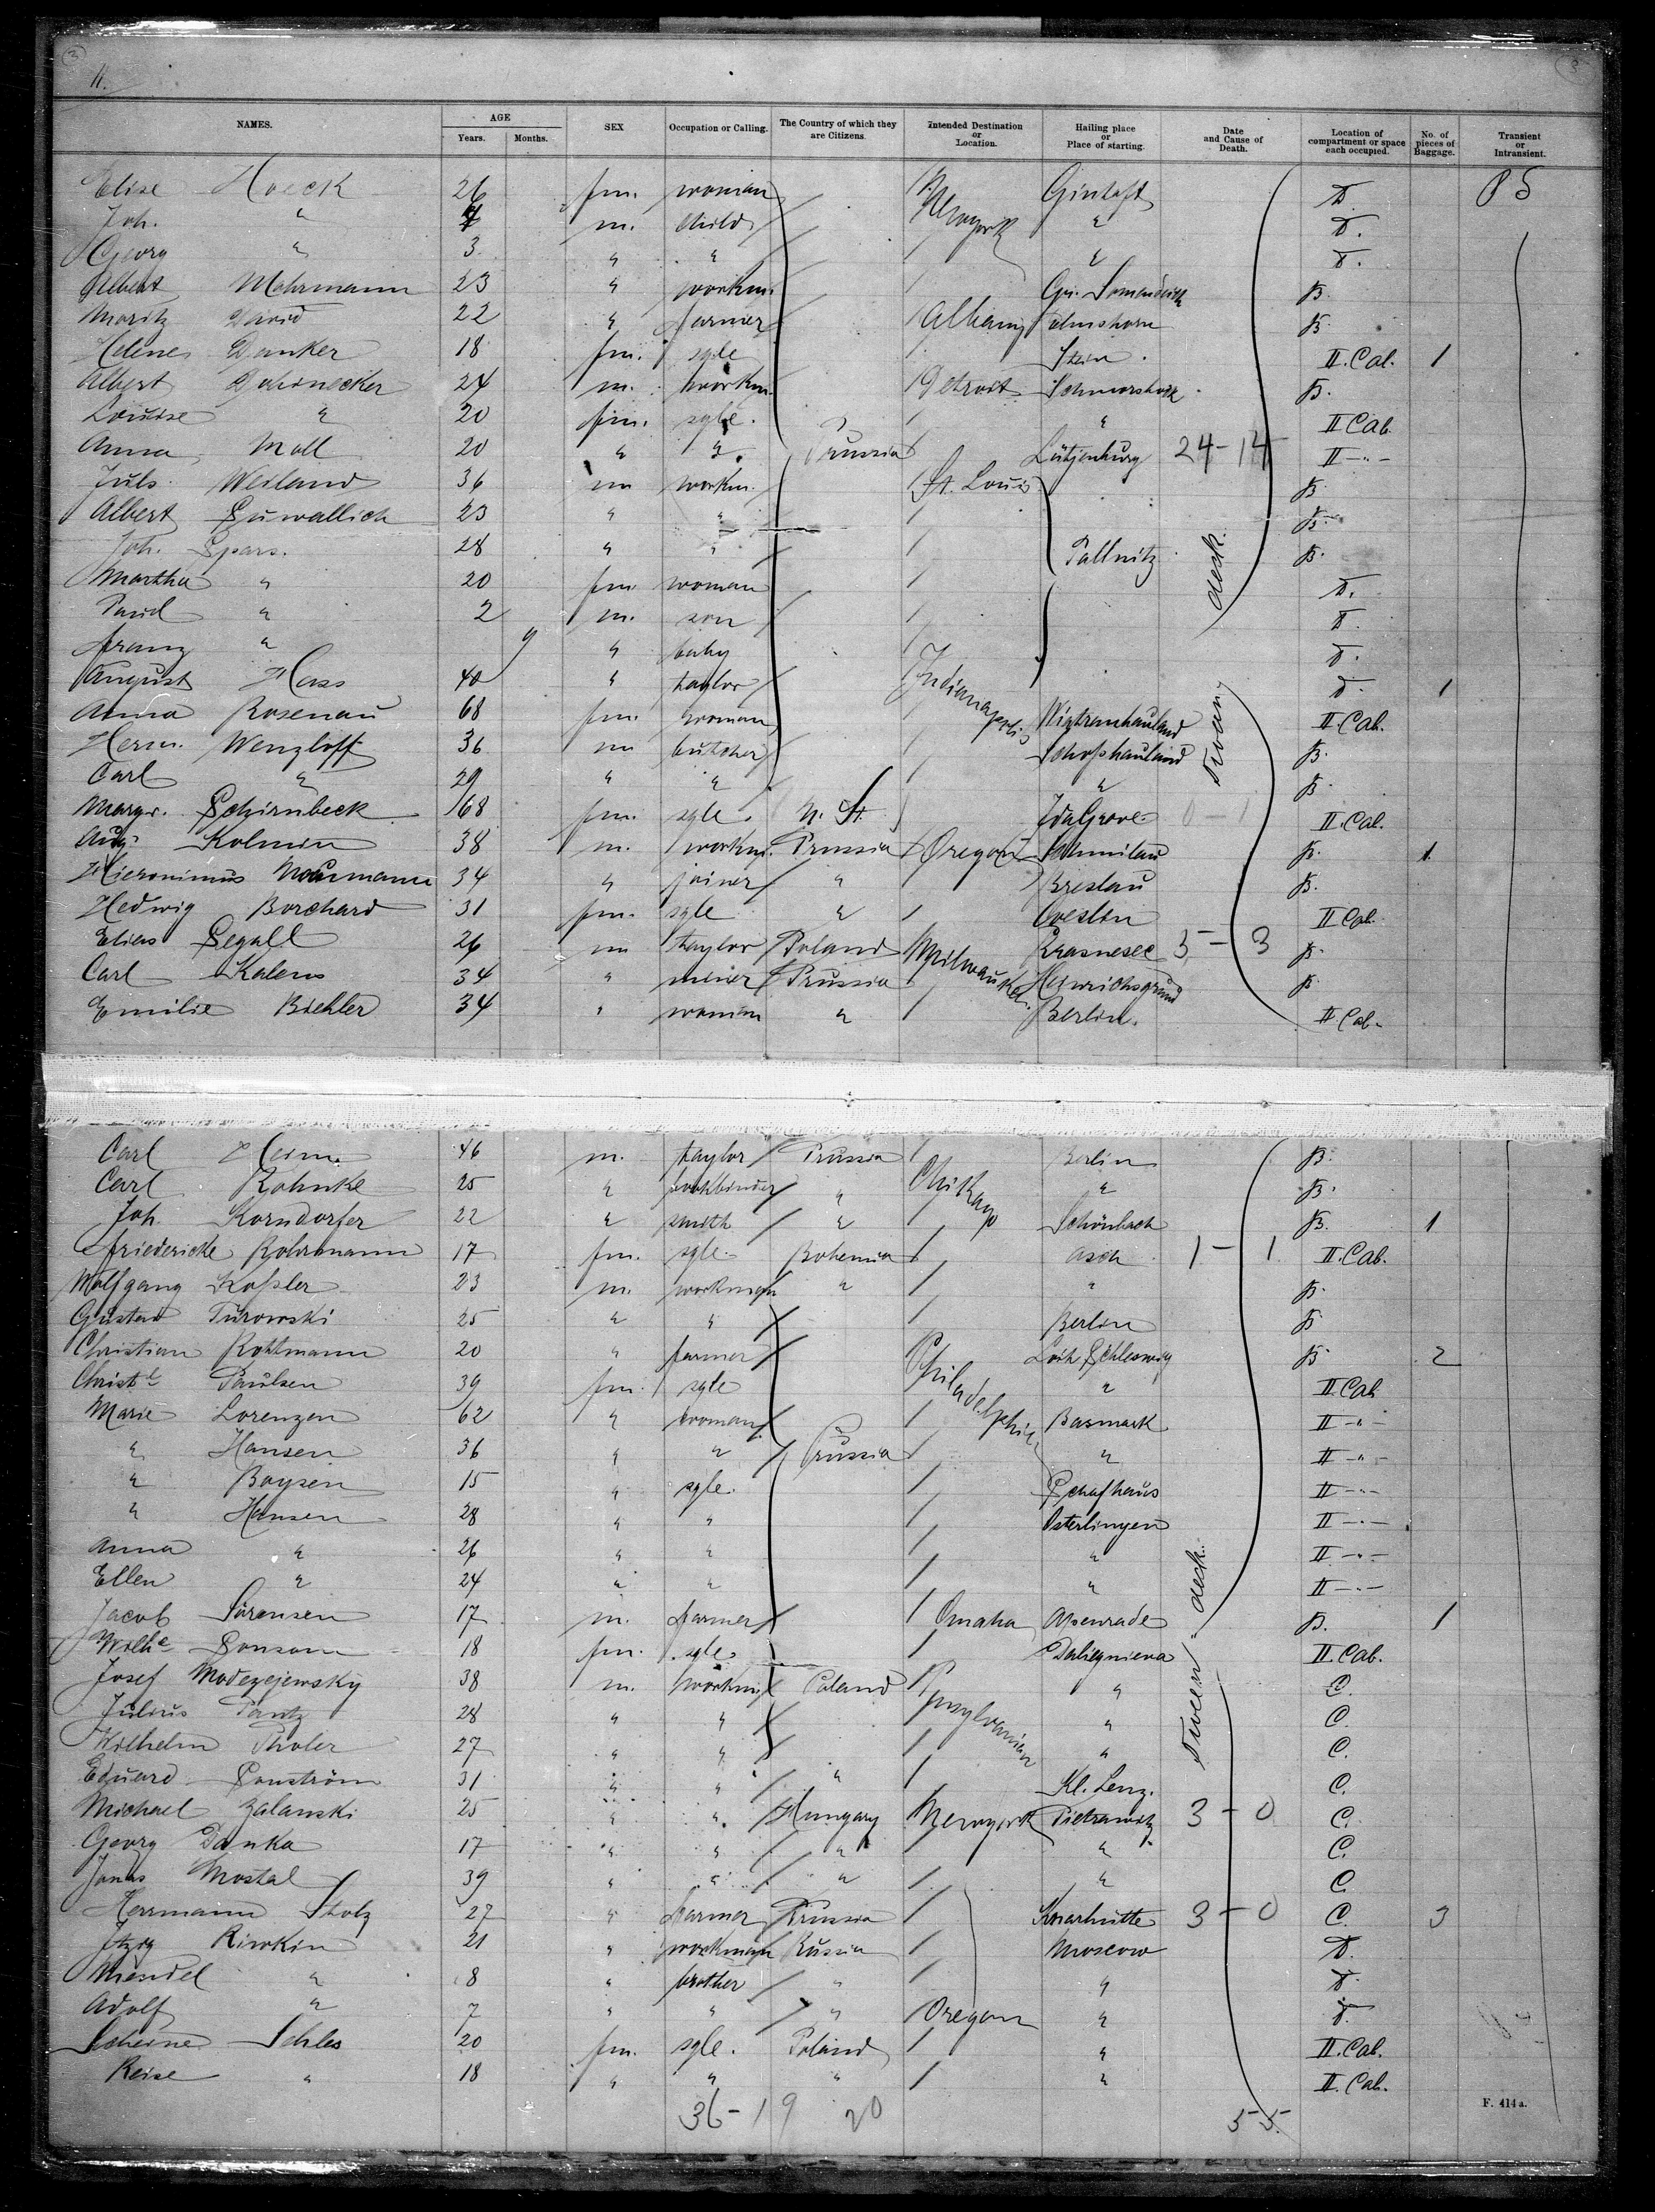 3
3
11.
NAMES. AGE Years. Months. SEX Occupation or Calling. The Country of which they are Citizens. Intended Destination or Location. Hailing place or Place of starting. Date and Cause of Death. Location of compartment or space each occupied. No. of pieces of Baggage. Transient or Intransient.
Elise Hoeck 26 fm. woman Newyork Gintoft D. 85
Joh. " 4 m. child " D.
Georg " 3 " " " D.
Albert Mohrmann 23 " workm. B.
Moritz David 22 " farmer Albany Elmshorn B.
Helene Danker 18 fm. sgle Stein. II. Cab. 1
Albert 24 m. workm. Detroit B.
Louise " 20 fm. sgle. " II Cab.
Anna Moll 20 " " Prussia Lütjenburg 24-14 II - " -
Juls. Weiland 36 m workm. St. Louis B.
Albert Suwallich 23 " " B.
Joh. Spars. 28 " " Pallnitz B.
Martha " 20 fm woman D.
Paul " 2 m. son D.
Franz " 9 " baby D.
August Hass 40 " taylor Indianapolis D. 1
Anna Rosenau 68 fm. woman II Cab.
Herm. Wenzloff 36 m butcher B.
Carl " 29 " " " B.
Margr. Schirnbeck 68 fm. sgle. U. St. IdaGrove 0-1 II. Cab.
Aug. Kolmin 38 m. workm. Prussia Oregon B. 1
Hieronimus 34 " joiner " Breslau B.
Hedwig Borchard 31 fm. sgle " II Cab.
Elias Segall 26 m taylor Poland Milwaukee Krasnesec 5-3 B.
Carl Kalems 34 " Prussia Heinrichsgrund B.
Emilie Biehler 34 " woman " Berlin. II Cab.
Tween desk.
Carl Heim 46 m. taylor Prussia Chikago Berlin B.
Carl Rohnke 25 " bookbinder " " B.
Joh. Korndorfer 22 " smith " Schönbach B. 1
Friedericke Rohrmann 17 fm. sgle. Bohemia Asch 1-1 II. Cab.
Wolfgang Kossler 23 m. workman " " B.
Gustav Turowski 25 " " Berlin B.
Christian Rottmann 20 " farmer Philadelphia Loit Schleswig B 2
Christ. Paulsen 39 fm. sgle " II. Cab
Marie Lorenzen 62 " woman Basmark II - " -
" Hansen 36 " " Prussia " II - " -
" Boysen 15 " sgle. Schafhaus II - " -
" Hansen 28 " " Osterlingen II - " -
Anna " 26 " " " II - " -
Ellen " 24 " " " II - " -
Jacob Sörensen 17 m. farmer Omaha Apenrade B. 1
Wilh. Sonsom 18 fm. sgle. II. Cab.
Josef Modezejewsky 38 m. workm. Poland " C.
Julius Pantz 28 " " " C.
Wilhelm Tholer 27 " " " C.
Eduard Sonström 31 " " " Kl. Lenz. C.
Michael Zalanski 25 " " Hungary Newyork Pietrawitz 3-0 C.
Georg Danka 17 " " " " C.
Jonas Mostal 39 " " " " C.
Herrmann Stolz 27 " farmer Prussia 3-0 C. 3
Itzig Riwkin 21 " workman Russia Moscow D.
Mendel " 8 " brother " " D.
Adolf " 7 " " " Oregon " D.
Scheine Schles 20 fm. sgle. Poland " II. Cab.
Reise " 18 " " " " II. Cab.
Tween deck.
36-19 20 55
F. 414 a.